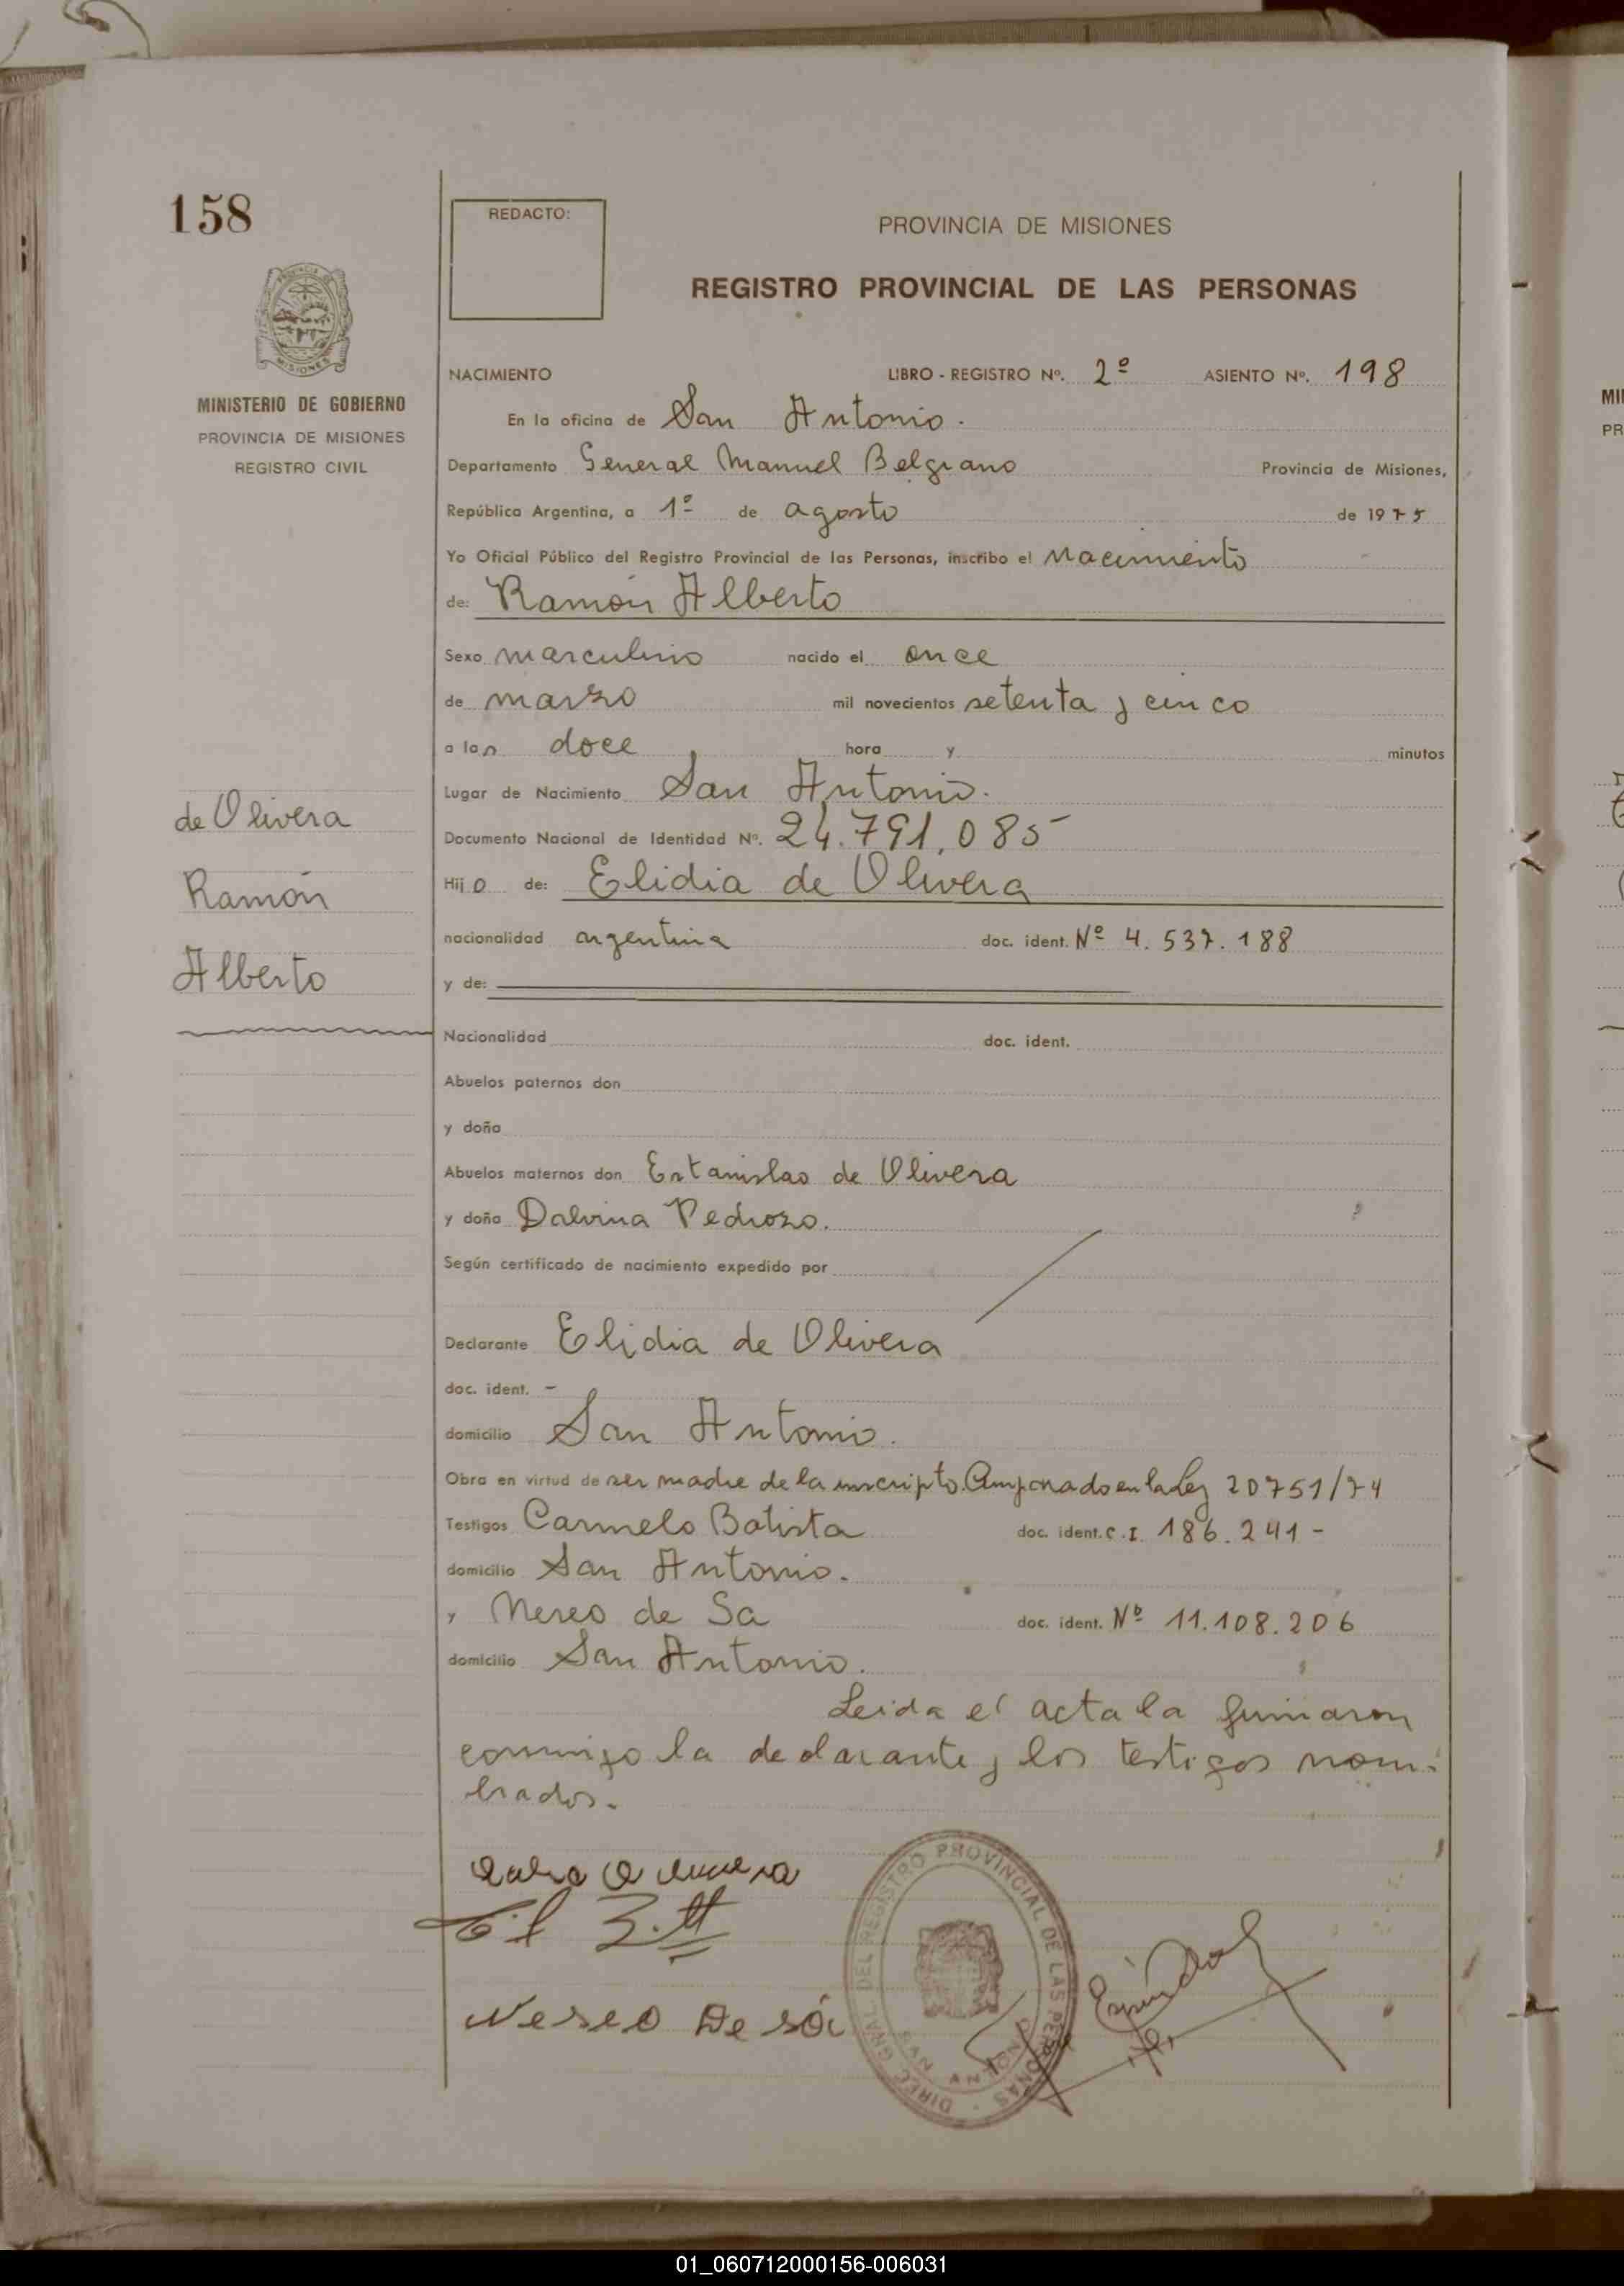 158
REDACTO:
PROVINCIA DE MISIONES
REGISTRO PROVINCIAL DE LAS PERSONAS
MINISTERIO DE GOBIERNO
PROVINCIA DE MISIONES
REGISTRO CIVIL
NACIMIENTO LIBRO - REGISTRO Nº. 2º ASIENTO Nº. 198
En la oficina de San Antonio.
Departamento General Manuel Belgrano Provincia de Misiones,
República Argentina, a 1º de agosto de 1975
Yo Oficial Público del Registro Provincial de las Personas, inscribo el Nacimiento
de: Ramón Alberto
Sexo masculino nacido el once
de marzo mil novecientos setenta y cinco
a las doce hora y minutos
Lugar de Nacimiento San Antonio.
Documento Nacional de Identidad Nº. 24.791.085
Hijo de: Elidia de Olivera
nacionalidad argentina doc. ident. Nº 4.537.188
y de:
de Olivera
Ramón
Alberto
Nacionalidad doc. ident.
Abuelos paternos don
y doña
Abuelos maternos don Estanislao de Olivera
y doña Dalvina Pedrozo.
Según certificado de nacimiento expedido por
Declarante Elidia de Olivera
doc. ident. -
domicilio San Antonio.
Obra en virtud de ser madre de la inscripto. Amparado en la Ley 20751/74
Testigos Carmelo Batista doc. ident. C.I. 186.241-
domicilio San Antonio.
y Nereo de Sa doc. ident. Nº 11.108.206
domicilio San Antonio.
Leida el acta la firmaron
conmigo la declarante y los testigos nom-
brados.
Nereo De sá
DIREC. GRAL. DEL REGISTRO PROVINCIAL DE LAS PERSONAS
SAN ANTONIO
MINI
PR
01_060712000156-006031